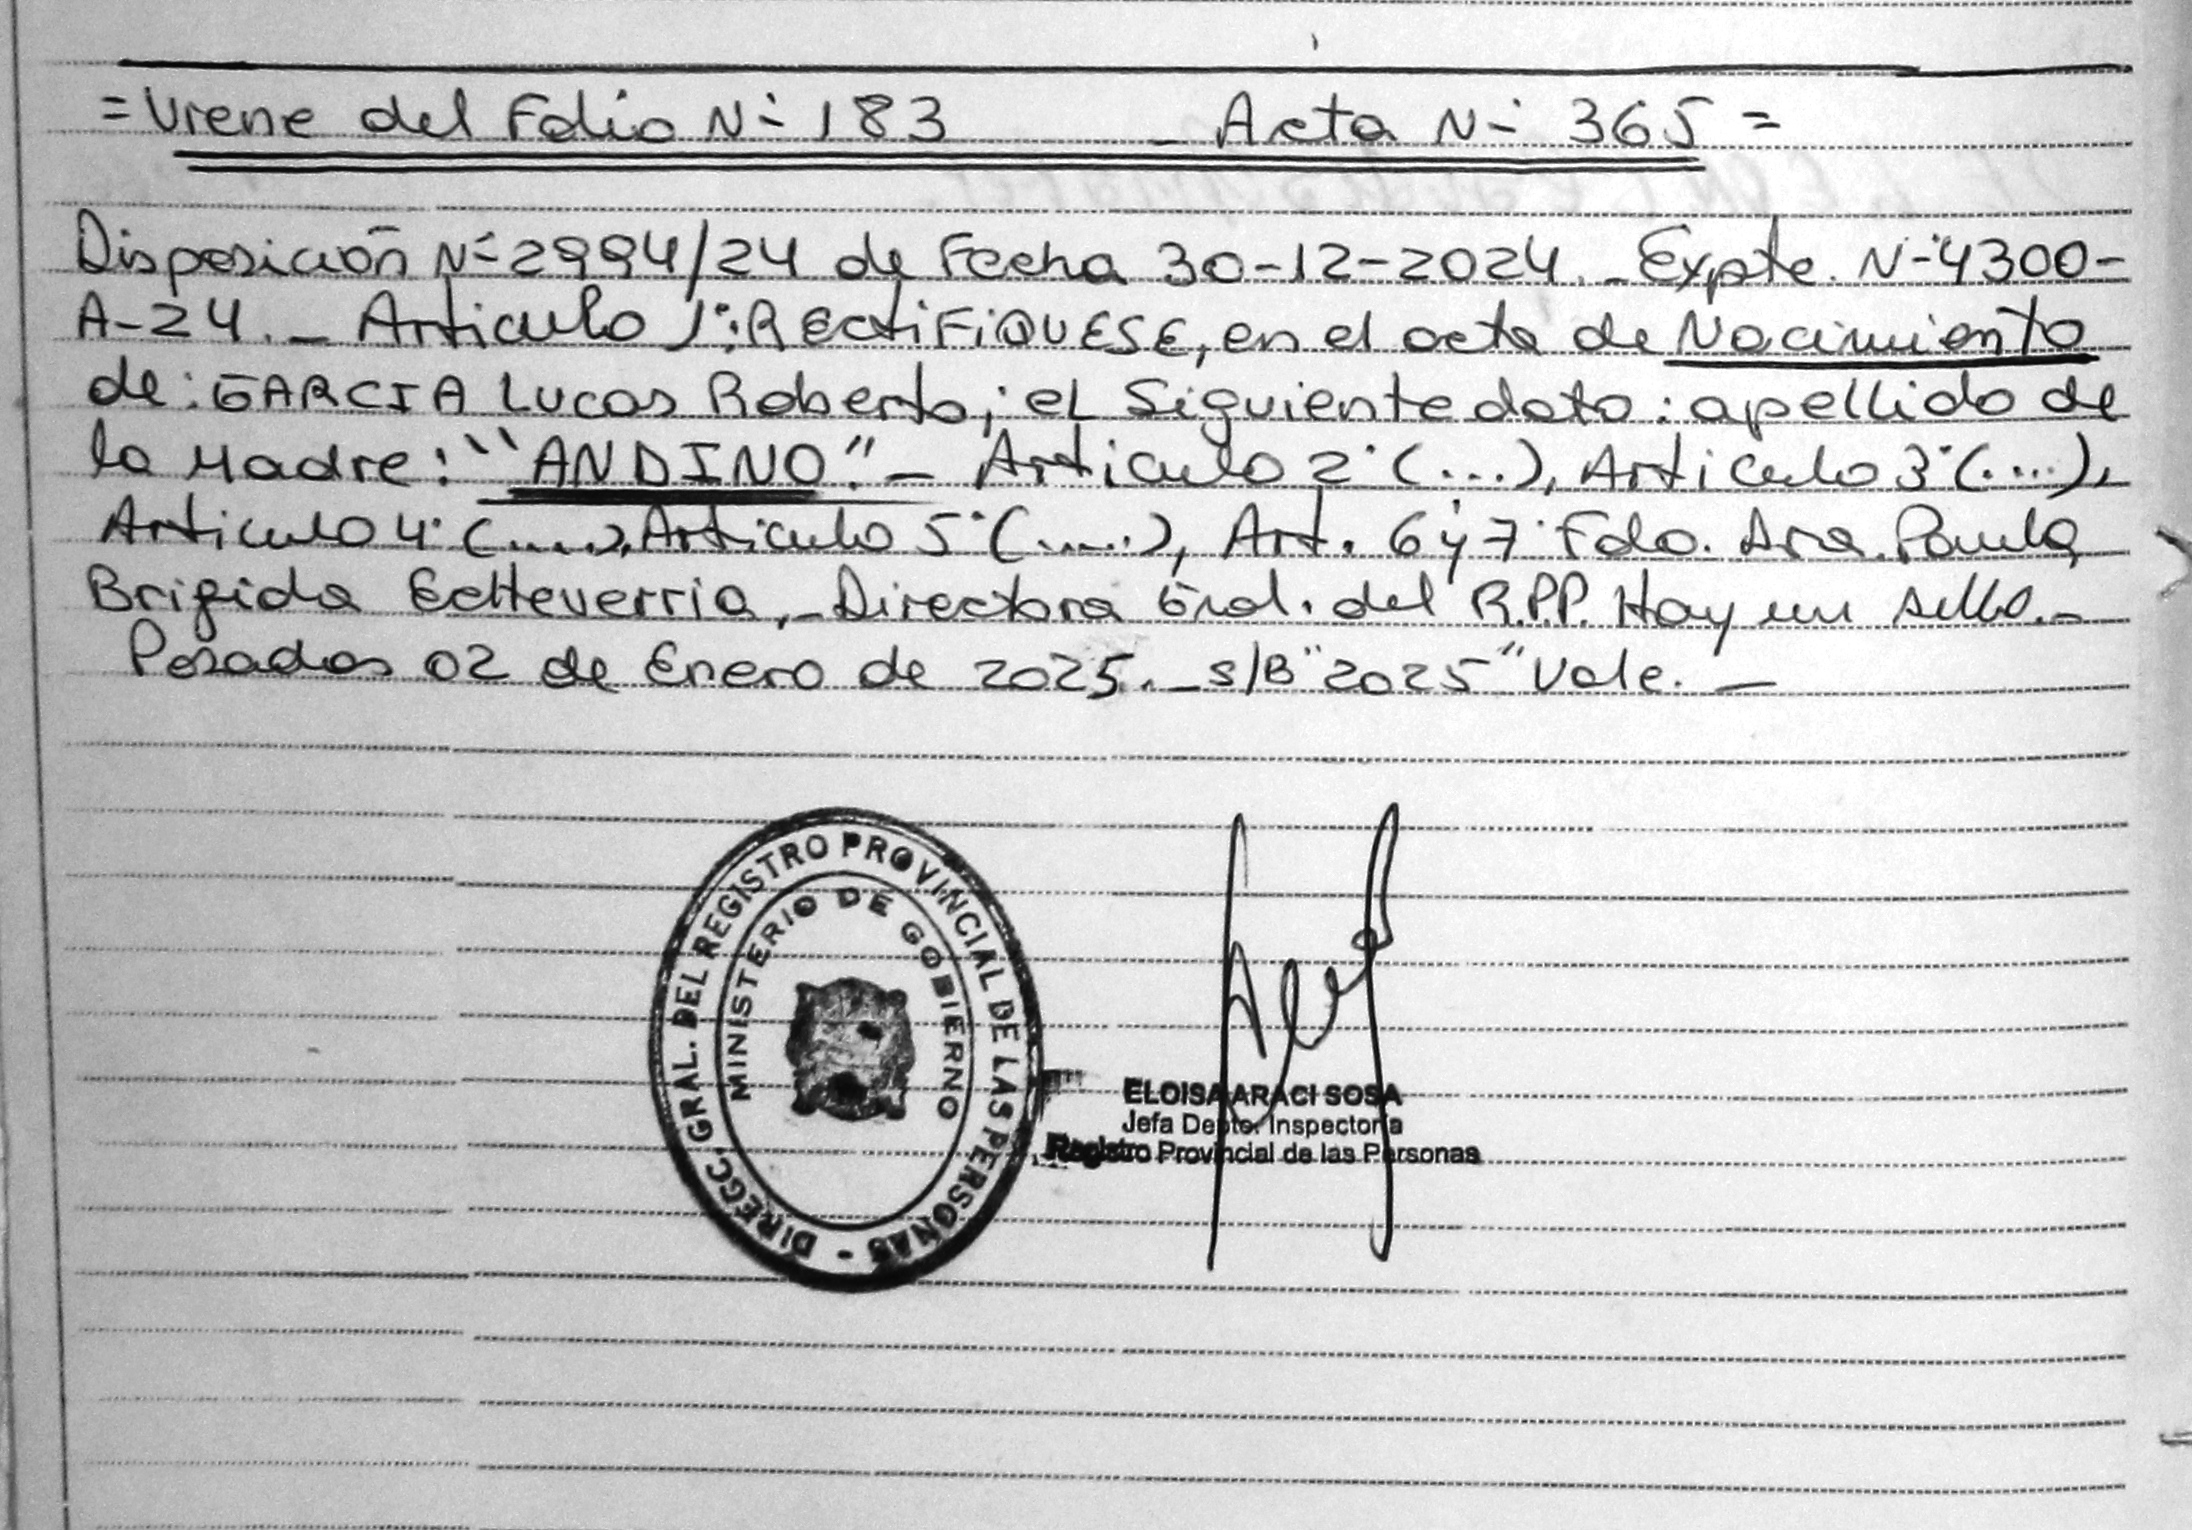 = Viene del Folio N- 183 _ Acta N- 365 =
Disposición N- 2994/24 de Fecha 30-12-2024._ Expte. N- 4300-
A-24._ Articulo 1°: RECtiFiQUESE, en el acta de Nacimiento
de: GARCIA Lucas Roberto; el Siguiente dato: apellido de
la Madre: "ANDINO"._ Articulo 2° (...), Articulo 3° (....),
Articulo 4° (.....), Articulo 5° (.....), Art. 6 y 7° Fdo. Dra. Paula
Brigida Echeverria,_ Directora Gral. del R.P.P. Hay un sello._
Posadas 02 de Enero de 2025._ s/B "2025" Vale._
DIRECC. GRAL. DEL REGISTRO PROVINCIAL DE LAS PERSONAS -
MINISTERIO DE GOBIERNO
ELOISA ARACI SOSA
Jefa Depto. Inspectoria
Registro Provincial de las Personas